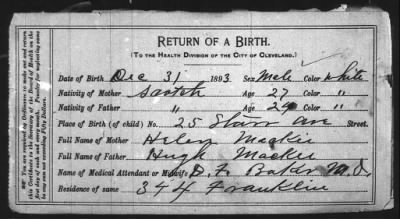 RETURN OF A BIRTH.
(TO THE HEALTH DIVISION OF THE CITY OF CLEVELAND.)
Date of Birth Dec 31 1893 Sex Male Color White
Nativity of Mother Scotch Age 27 Color "
Nativity of Father " Age 24 Color "
Place of Birth (of child) No. 25 Starr Ave Street.
Full Name of Mother Helen Mackie
Full Name of Father Hugh Mackie
Name of Medical Attendant or Midwife D. F. Baker M.D.
Residence of same 344 Franklin
You are required by Ordinance to make out and return
this Certificate to the Secretary of the Board of Health on the
first day of each and every month. Penalty for neglecting same
is any sum not exceeding Fifty Dollars.